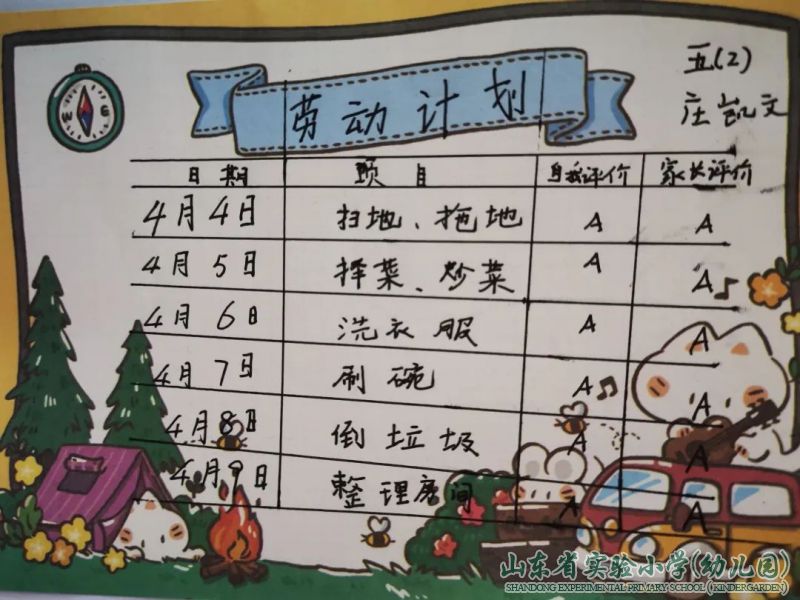 五(2)
劳动计划
庄凯文
日期 项目 自我评价 家长评价
4月4日 扫地、拖地 A A
4月5日 择菜、炒菜 A A
4月6日 洗衣服 A A
4月7日 刷碗 A A
4月8日 倒垃圾 A A
4月9日 整理房间 A A
山东省实验小学(幼儿园)
SHANDONG EXPERIMENTAL PRIMARY SCHOOL (KINDERGARDEN)